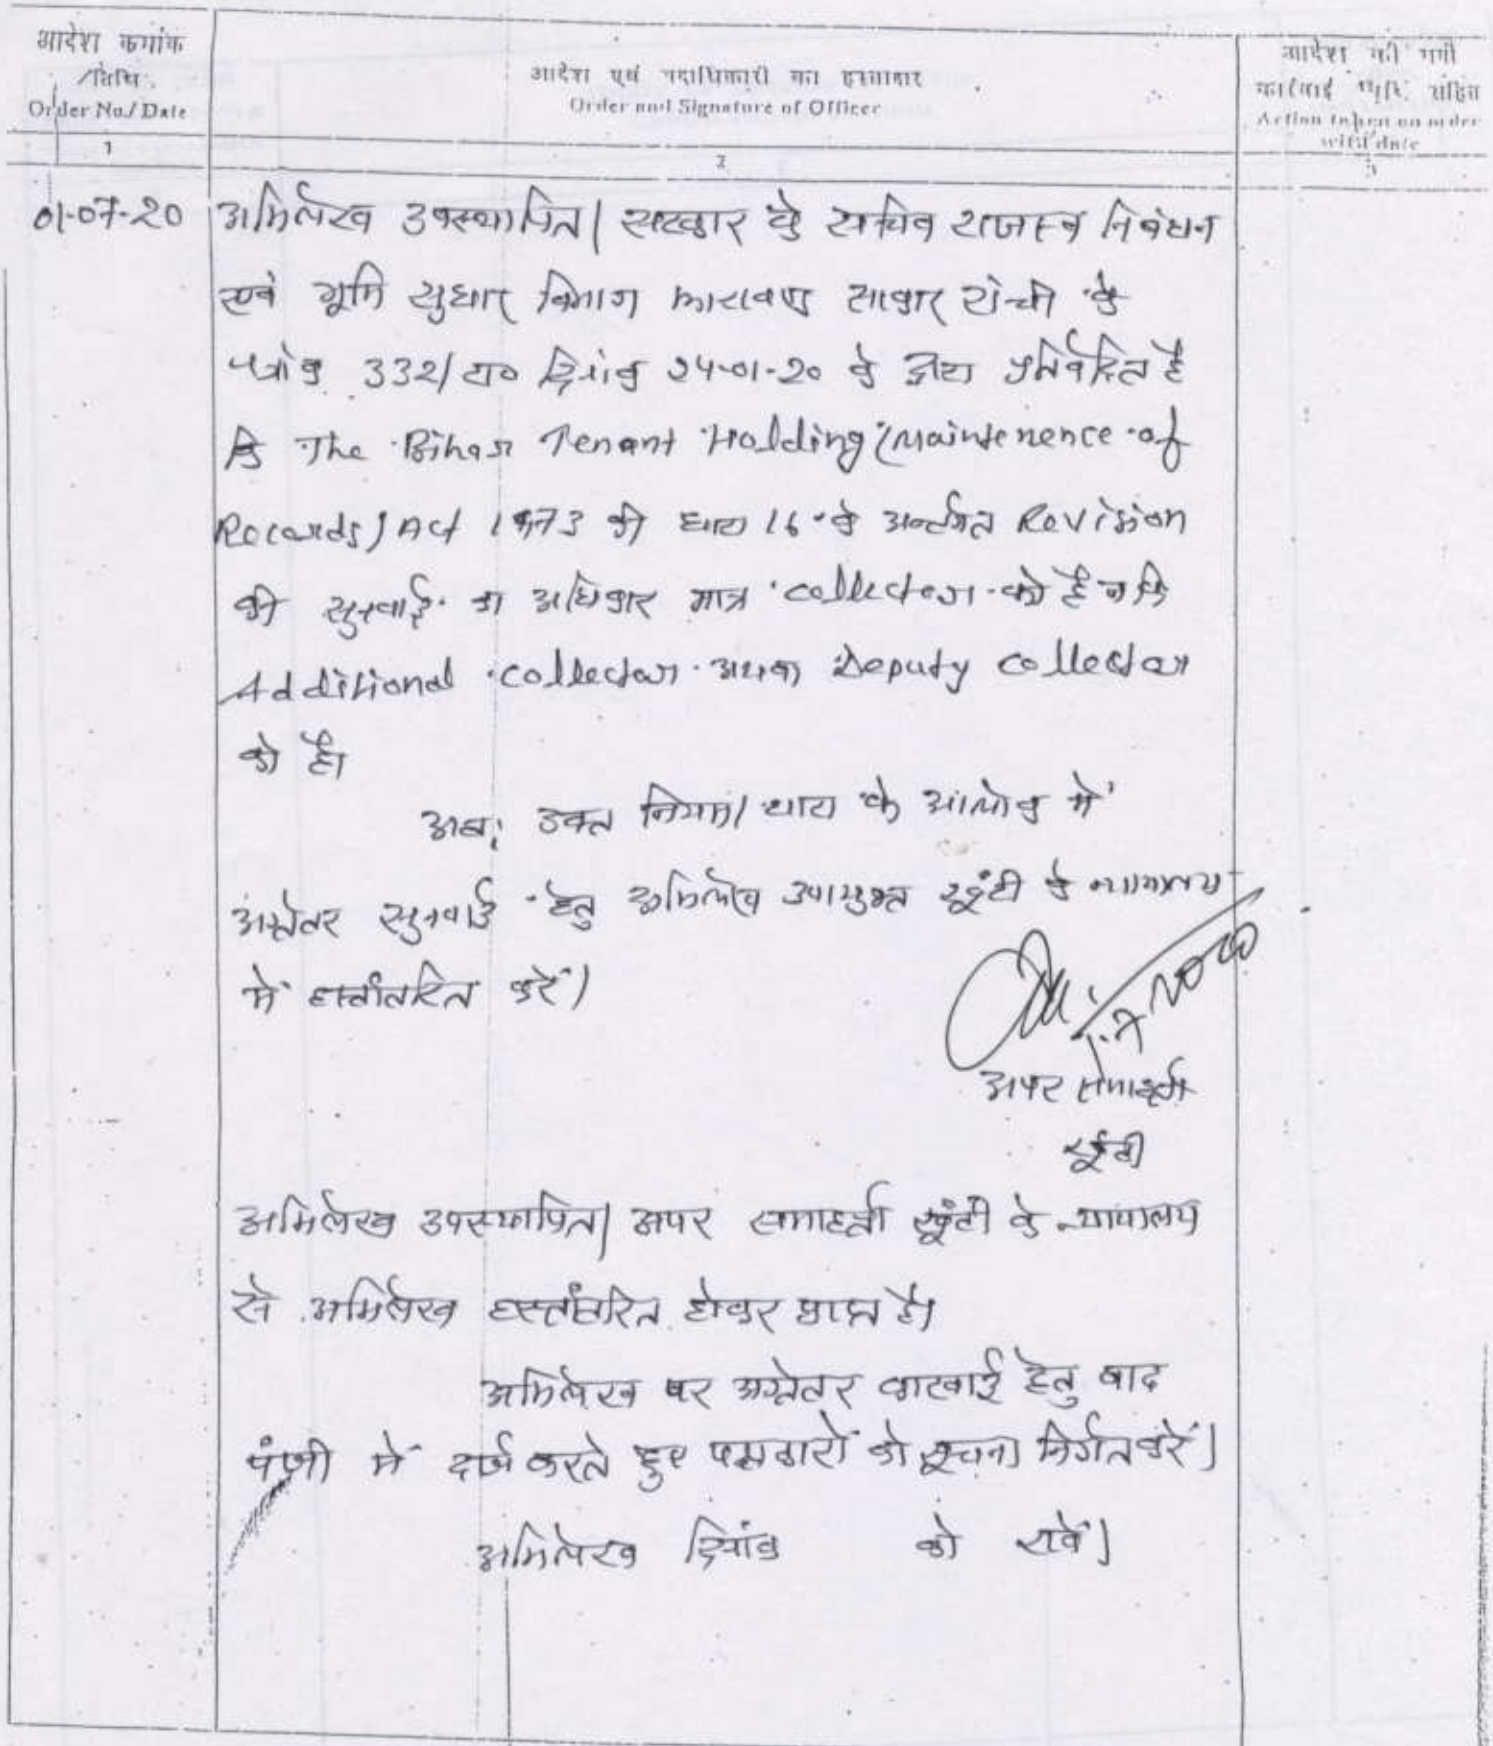 आदेश क्रमांक
/तिथि
Order No./Date
1
आदेश एवं पदाधिकारी का हस्ताक्षर
Order and Signature of Officer
2
आदेश की गयी
कार्रवाई सहित
Action taken on order
with date
3
01-07-20 अभिलेख उपस्थापित। सरकार के सचिव राजस्व निबंधन
एवं भूमि सुधार विभाग झारखण्ड सरकार राँची के
पत्रांक 332/रा० दिनांक 24-01-20 के द्वारा प्रतिवेदित है
कि The Bihar Tenant Holding (Maintenence of
Records) Act 1973 की धारा 16 के अन्तर्गत Revision
की सुनवाई का अधिकार मात्र collector को है न कि
Additional collector अथवा Deputy collector
को है।
अतः उक्त नियम/धारा के आलोक में
अग्रेतर सुनवाई हेतु अभिलेख उपायुक्त खूंटी के न्यायालय
में हस्तांतरित करें।
1.7.2020
अपर समाहर्ता
खूंटी
अभिलेख उपस्थापित। अपर समाहर्ता खूंटी के न्यायालय
से अभिलेख हस्तांतरित होकर प्राप्त है।
अभिलेख पर अग्रेतर कारवाई हेतु वाद
पंजी में दर्ज करते हुए पक्षकारों को सूचना निर्गत करें।
अभिलेख दिनांक को रखें।